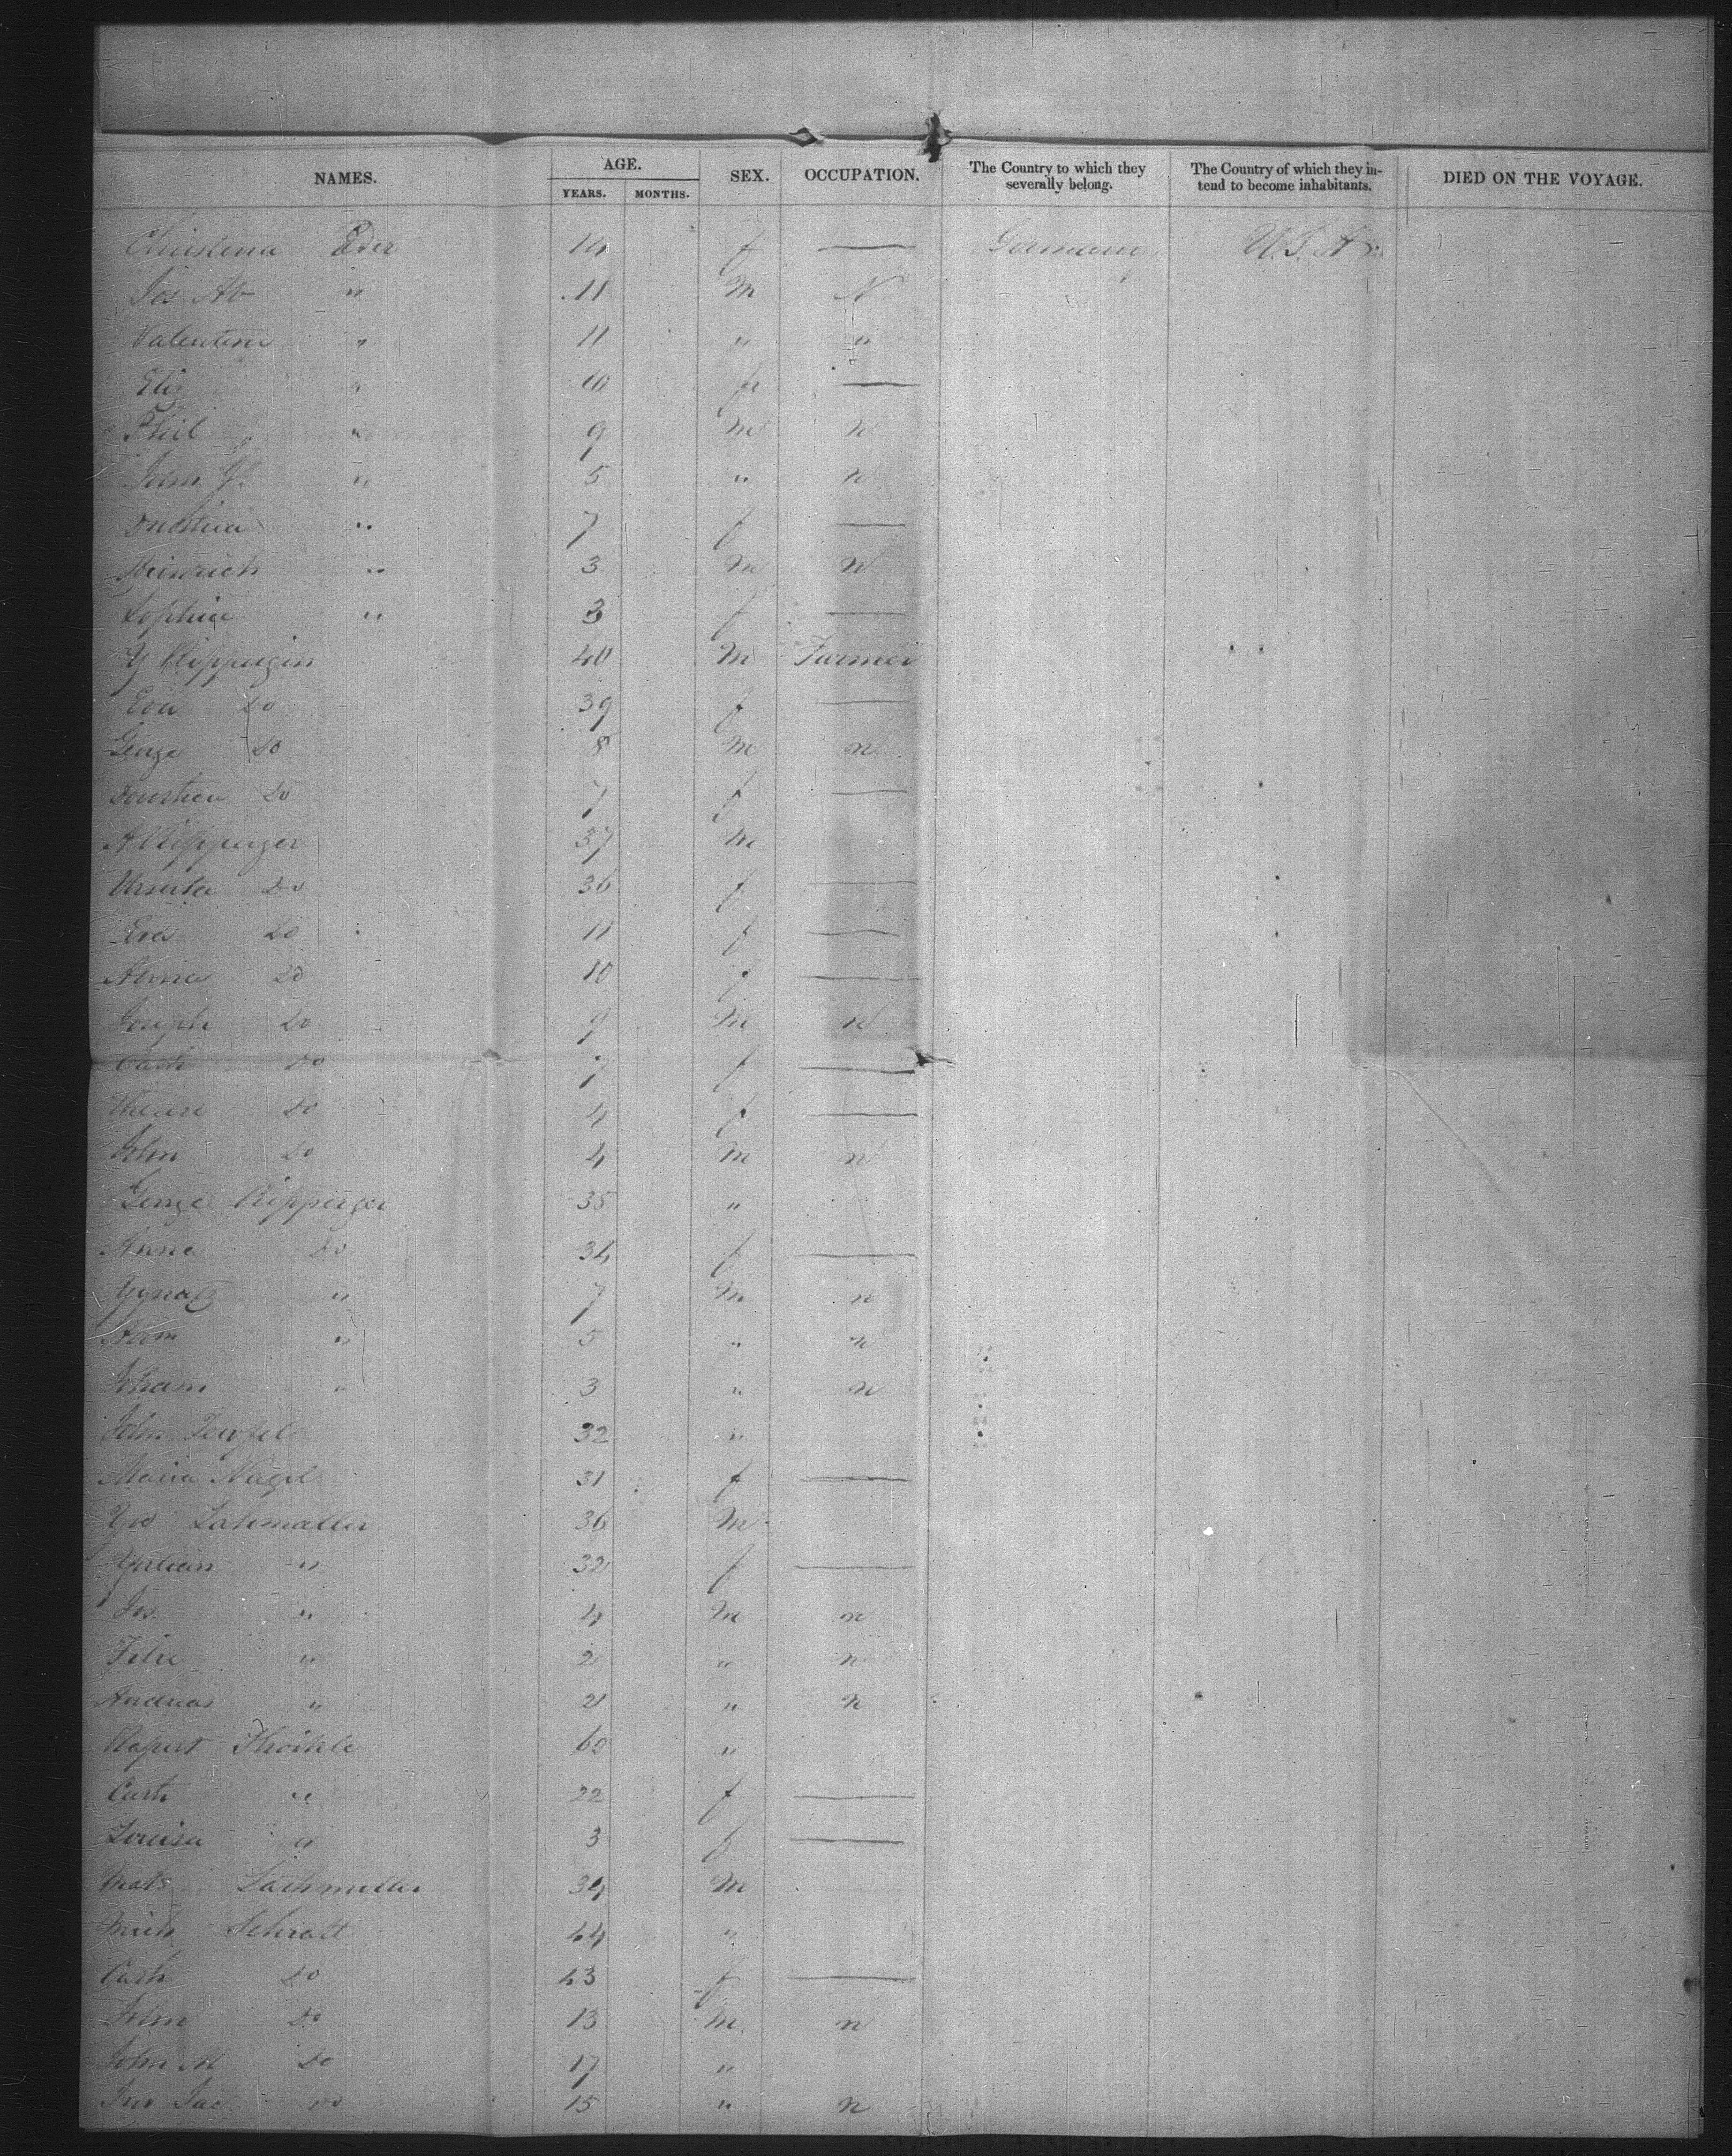 NAMES. AGE. SEX. OCCUPATION. The Country to which they severally belong. The Country of which they intend to become inhabitants. DIED ON THE VOYAGE.
YEARS. MONTHS.
Christena Eder 14 f — Germany U.S.A
Jos Ab " 11 M N
Valentine " 11 " "
Eliz " 10 f —
Phil " 9 M N
John " 5 " N
" 7 f —
Heinrich " 3 M N
Sophie " 3 f —
Y Rippergin 40 M Farmer
Eva Do 39 f —
George Do 8 M N
Do 7 f —
A Ripperger 37 M
Ursula Do 36 f —
Eva Do 11 f —
Annie Do 10 f —
Joseph Do 9 M N
Cath Do 7 f —
Do 4 f —
John Do 4 M N
George Ripperger 35 "
Anna Do 34 f —
Ygnatz " 7 M N
" 5 " N
Joham " 3 " N
John Teufel 32 "
Maria Nagel 31 f —
36 M
Yulian " 32 f —
Jos " 4 M N
Felix " 2 " N
Andreas " 2 " N
Rupert 60 "
Cath " 22 f —
Louisa " 3 f —
Mats Lachmuller 34 M
Mich Schratt 44 "
Cath Do 43 f —
John Do 13 M N
John M Do 17 "
Jac Do 15 " N